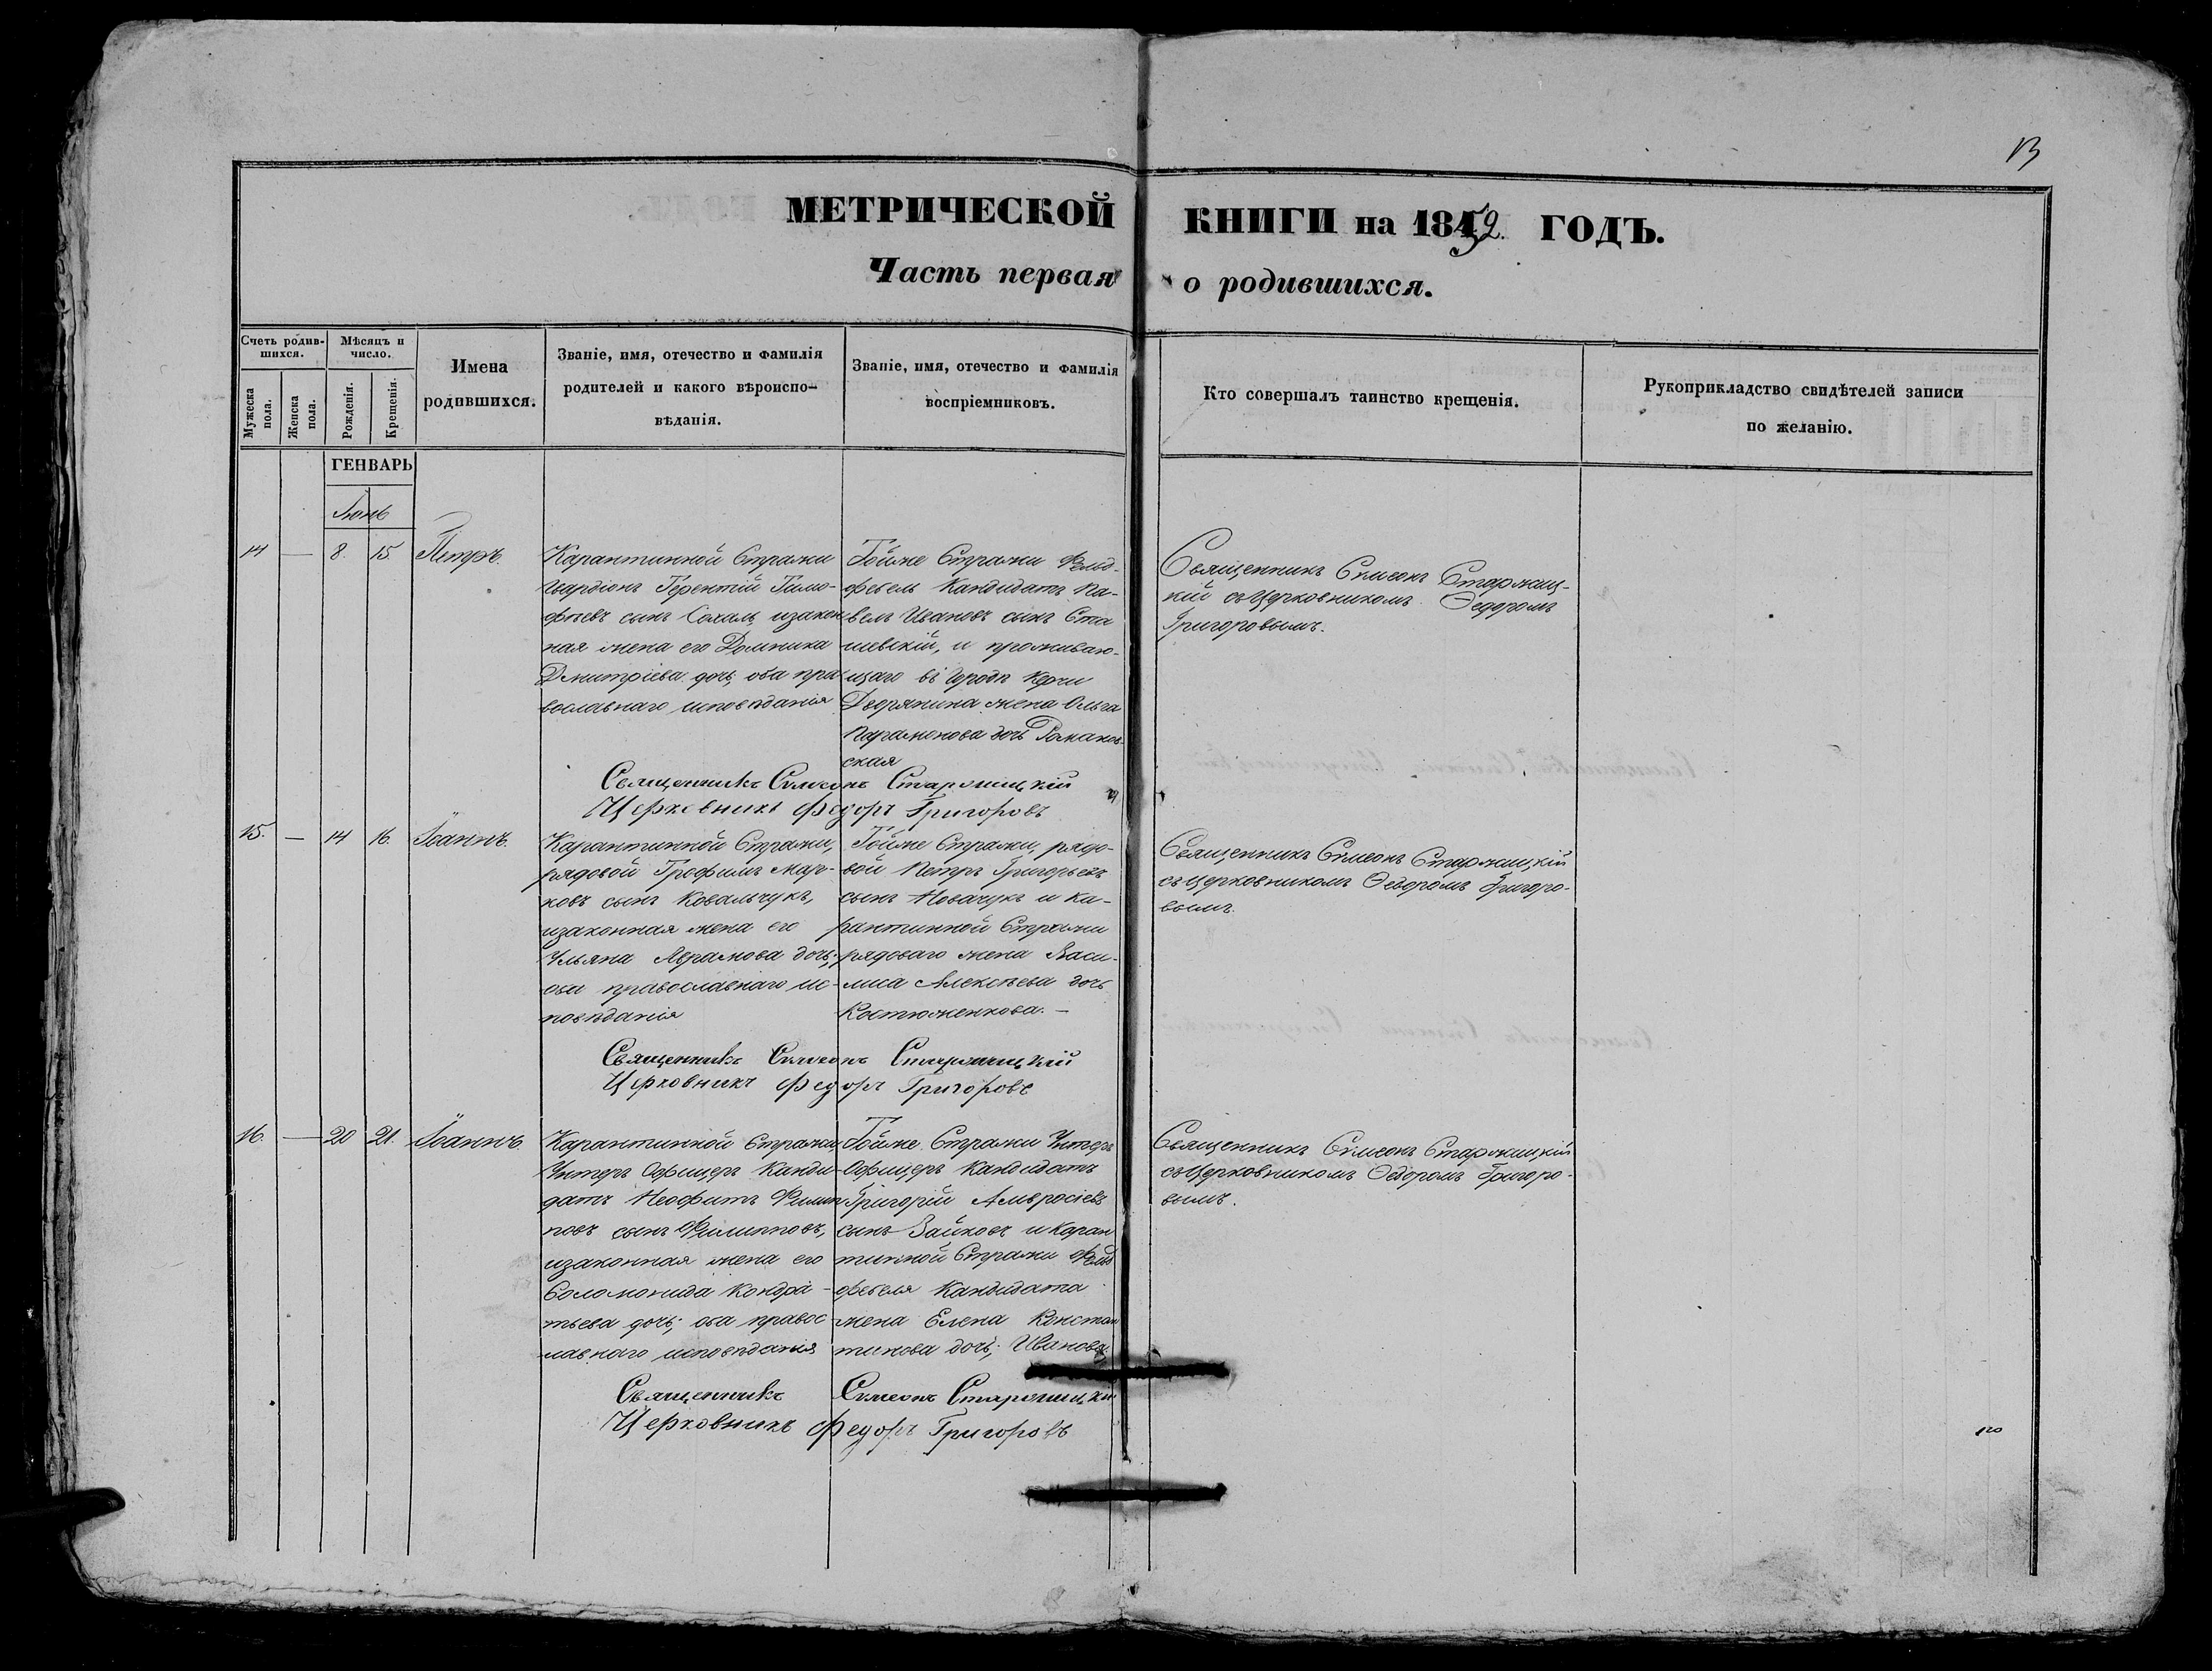 13
МЕТРИЧЕСКОЙ КНИГИ на 1852. ГОДЪ.
Часть первая о родившихся.
Счетъ родив-
шихся.
Мужеска пола.
Женска пола.
Мѣсяцъ и
число.
Рожденія.
Крещенія.
Имена
родившихся.
Званіе, имя, отечество и фамилія
родителей и какого вѣроиспо-
вѣданія.
Званіе, имя, отечество и фамилія
воспріемниковъ.
Кто совершалъ таинство крещенія.
Рукоприкладство свидѣтелей записи
по желанію.
ГЕНВАРЬ
Іюнь
14 — 8. 15. Петръ.
Карантинной Стражи
Гвардіонъ Терентій Тимо-
фѣевъ сынъ изакон
ная жена его Домника
Дмитріева дочь, оба пра
вославнаго исповѣданія
Тойже Стражи Фельд-
фебель Кандидатъ Па-
велъ Ивановъ сынъ Ста
шевскій, и проживаю-
щаго въ Городѣ Керчи
Дворянина жена Ольга
Парамонова дочь Романов-
ская
Священникъ Сѵмеонъ Старжиц-
кій съ Церковникомъ Ѳедоромъ
Григоровымъ.
Священникъ Сѵмеонъ Старжицкій
Церковникъ Федоръ Григоровъ
15. — 14 16. Іоаннъ.
Карантинной Стражи,
рядовой Трофимъ Мар-
ковъ сынъ Ковальчукъ,
изаконная жена его
Ульяна Аврамова дочь;
оба православнаго ис-
повѣданія
Тойже Стражи, рядо-
вой Петръ Григорьевъ
сынъ Новачукъ и Ка-
рантинной Стражи
рядоваго жена Васи-
лиса Алексѣева дочь
Костюженкова. —
Священникъ Сѵмеонъ Старжицкій
съ Церковникомъ Ѳедоромъ Григоро-
вымъ.
Священникъ Сѵмеонъ Старжицкій
Церковникъ Федоръ Григоровъ
16. — 20 21. Іоаннъ.
Карантинной Стражи,
Унтеръ Офицеръ Канди-
датъ Неофитъ Филип
повъ сынъ Филипповъ,
изаконная жена его
Соломонида Кондра-
тьева дочь; оба правос-
лавнаго исповѣданія
Тойже Стражи Унтеръ
Офицеръ Кандидатъ
Григорій Амвросіевъ
сынъ Зайковъ и Каран
тинной Стражи Фельд
фебеля Кандидата
жена Елена Констан
тинова дочь; Иванова.
Священникъ Сѵмеонъ Старжицкій
съ Церковникомъ Ѳедоромъ Григоро-
вымъ.
Священникъ Сѵмеонъ Старжицкій
Церковникъ Федоръ Григоровъ